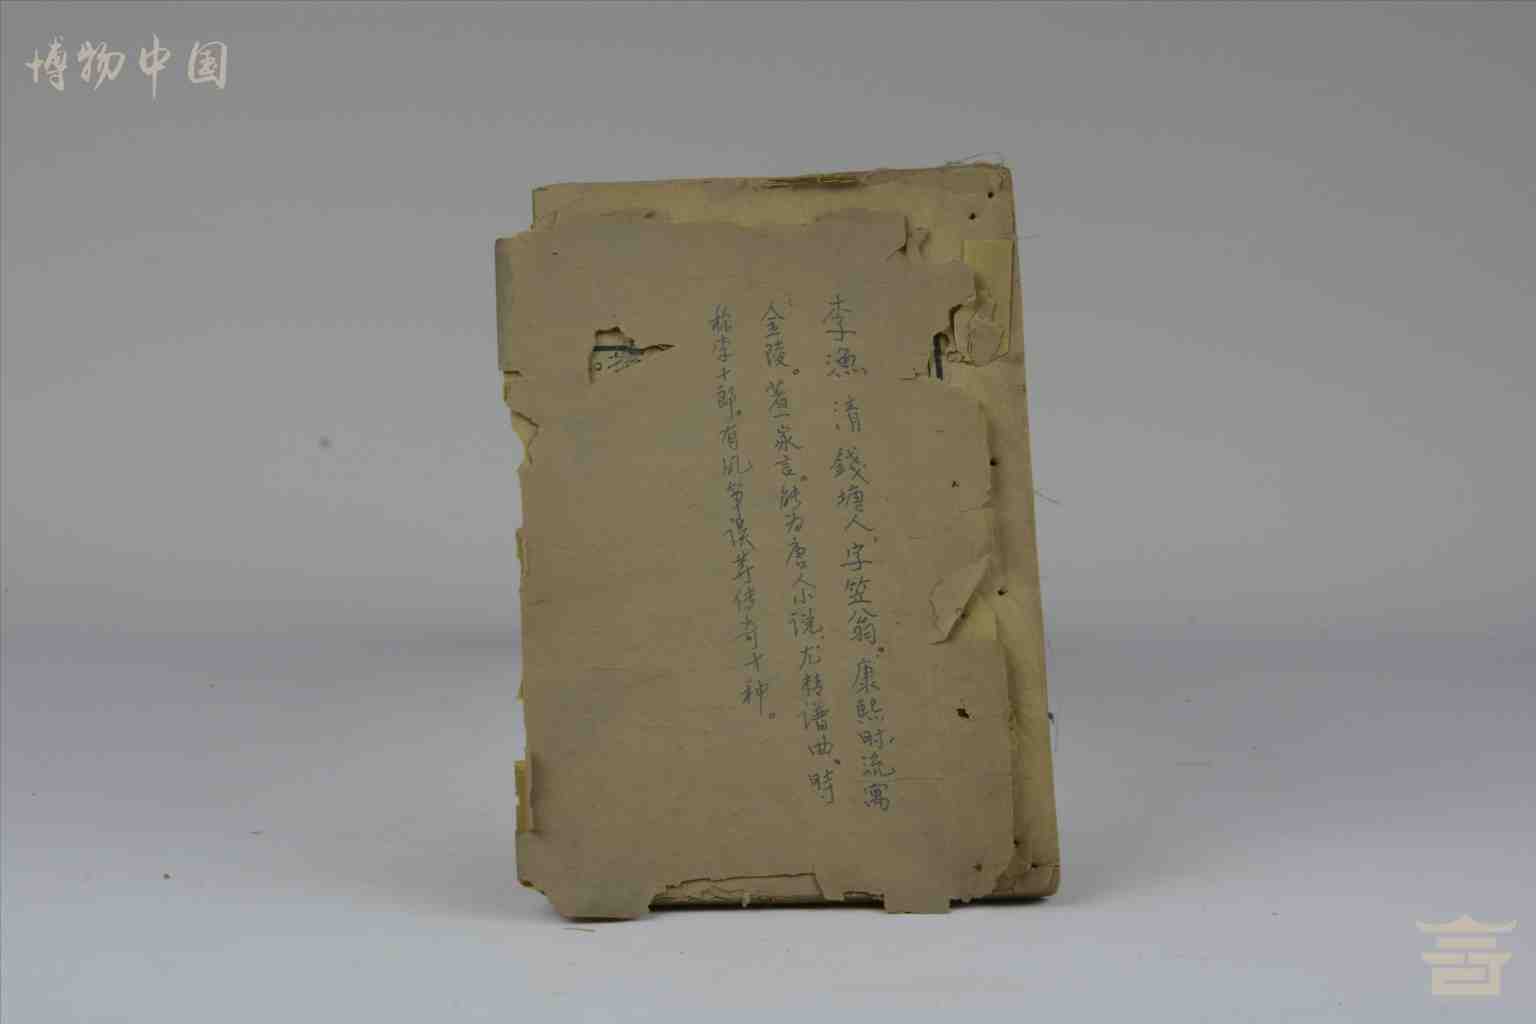 博物中国
李漁 清 錢塘人,字笠翁。康熙时,流寓
金陵。著一家言。能为唐人小说,尤精谱曲,時
称李十郎。有风筝误等传奇十种。